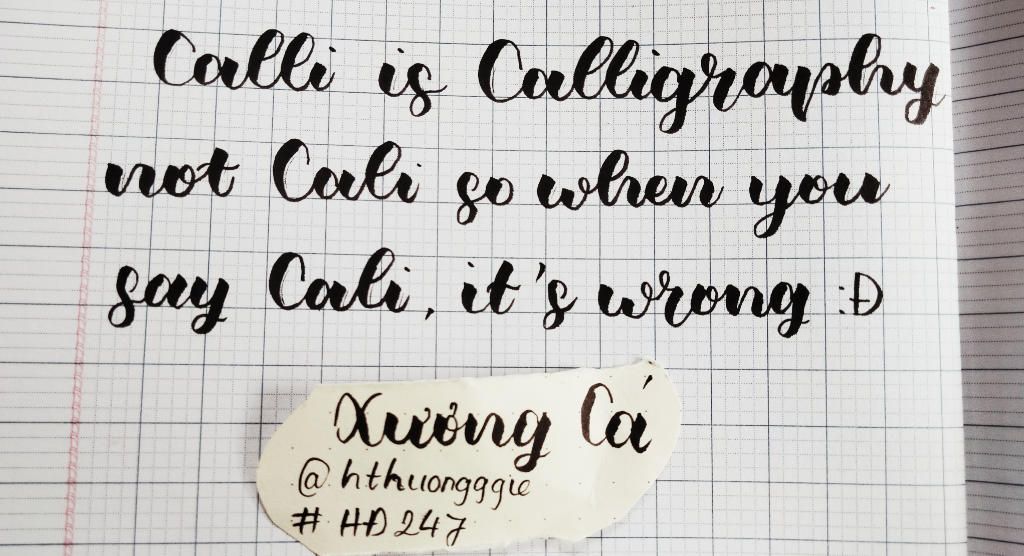 Calli is Calligraphy
not Cali so when you
say Cali, it's wrong :Đ
Xương Cá
@hthuongggie
#HĐ247